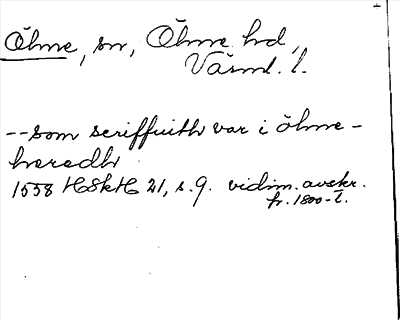 Ölme, sn, Ölme hd,
Värml. l.
-- som scriffuith var i ölme -
heredh
1558 HSkH 21, s. 9. vidim. avskr.
fr. 1800-t.